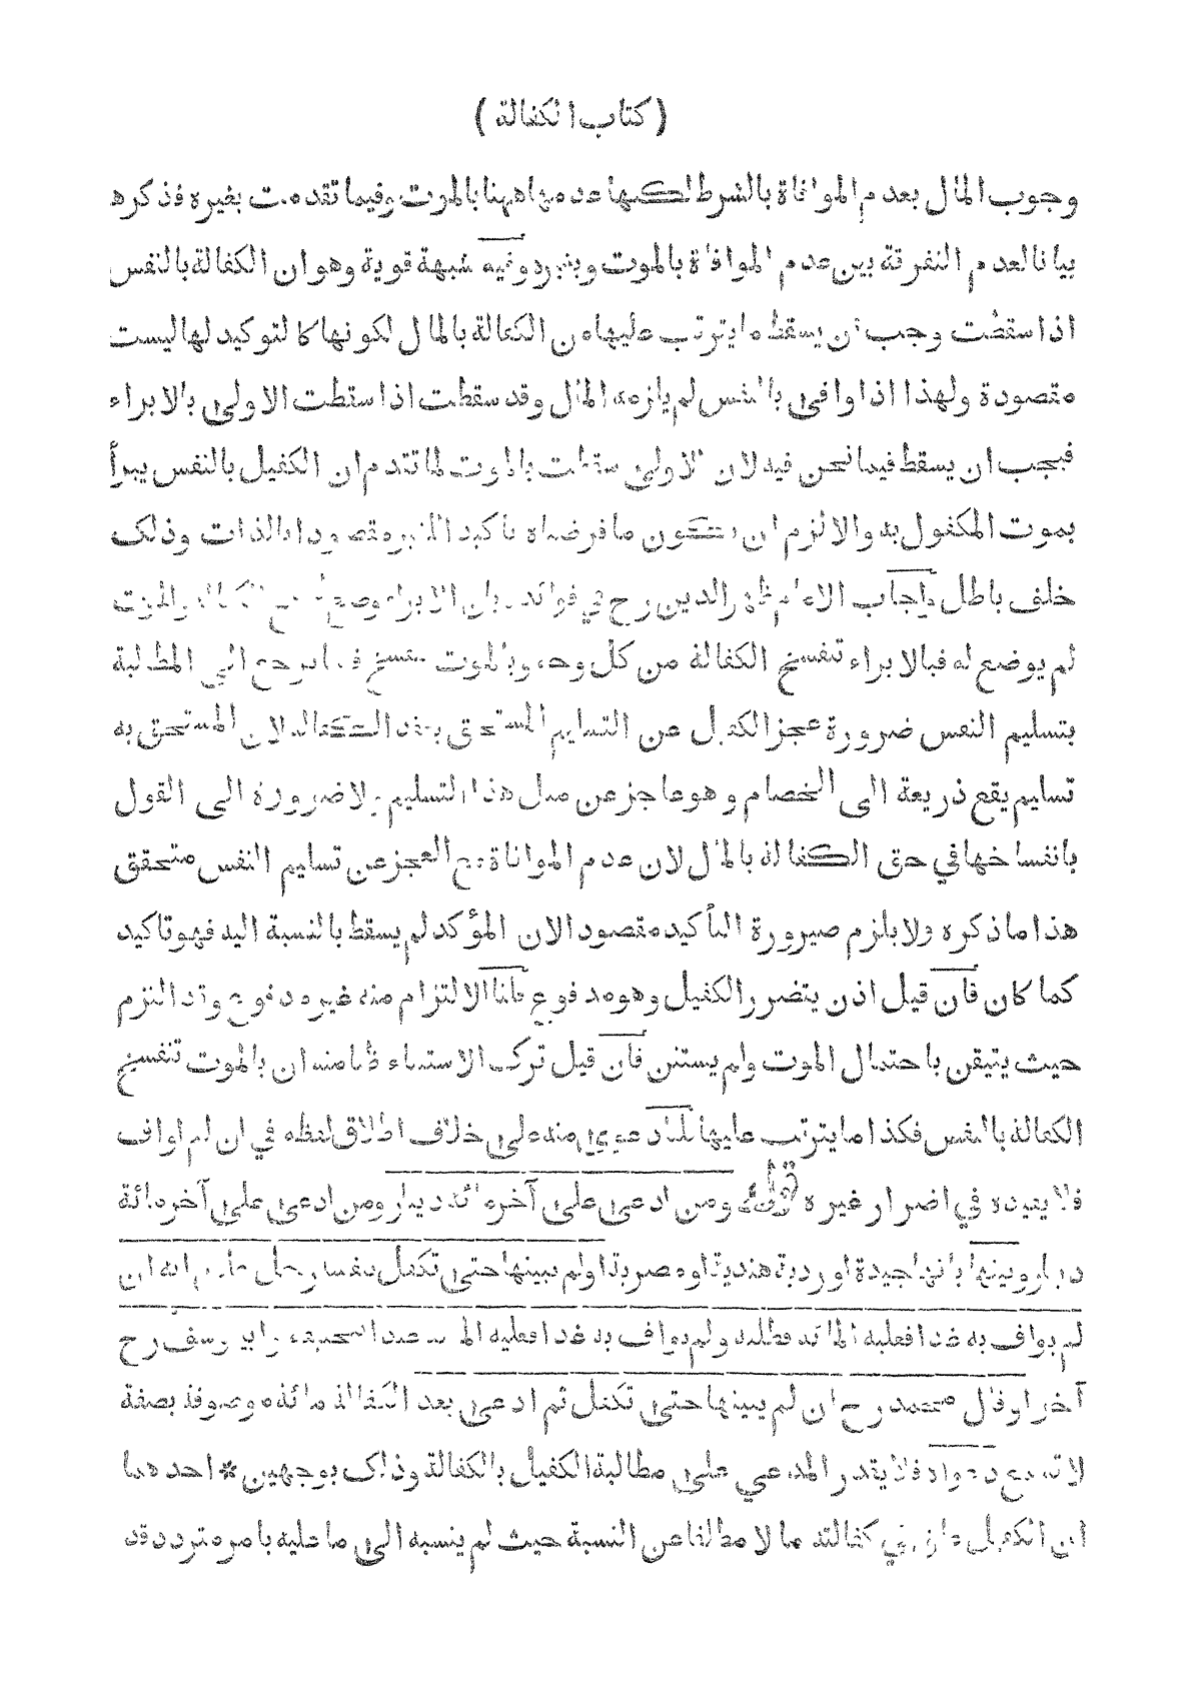 ( كتاب الكفالة )
وجوب المال بعدم الموافاة بالشرط لكنها عدمها ههنا بالموت وفيما تقدمت بغيره فذكرها
بيانا لعدم التفرقة بين عدم الموافاة بالموت وبغيره وفيه شبهة قوية وهو ان الكفالة بالنفس
اذا سقطت وجب ان يسقط ما يترتب عليها من الكفالة بالمال لكونها كالتوكيد لها ليست
مقصودة ولهذا اذا وافى بالنفس لم يلزمه المال وقد سقطت اذا سقطت الاولى بالابراء
فيجب ان يسقط فيما نحن فيه لان الاولى سقطت بالموت لما تقدم ان الكفيل بالنفس يبرأ
بموت المكفول به والا لزم ان يكون ما فرضناه تأكيدا لغيره مقصودا بالذات وذلك
خلف باطل واجاب الامام ظهير الدين رح في فوائده بان الابراء وضع الكفالة والموت
لم يوضع له فبالابراء تنفسخ الكفالة من كل وجه وبالموت تنفسخ فيما يرجع الى المطالبة
بتسليم النفس ضرورة عجز الكفيل عن التسليم المستحق بعقد الكفالة لان المستحق به
تسليم يقع ذريعة الى الخصام وهو عاجز عن مثل هذا التسليم ولا ضرورة الى القول
بانفساخها في حق الكفالة بالمال لان عدم الموافاة مع العجز عن تسليم النفس متحقق
هذا ما ذكره ولا يلزم صيرورة التأكيد مقصودا لان المؤكد لم يسقط بالنسبة اليه فهو تاكيد
كما كان فان قيل اذن يتضرر الكفيل وهو مدفوع قلنا الالتزام منه غيره مدفوع وقد التزم
حيث يتيقن باحتمال الموت ولم يستثن فان قيل ترك الاستثناء ظنا منه ان بالموت تنفسخ
الكفالة بالنفس فكذا ما يترتب عليها قلنا دعوى منه على خلاف اطلاق لفظه في ان لم اواف
فلا يفيده في اضرار غيره قوله ومن ادعى على آخر مائة دينار ومن ادعى على آخر مائة
دينار وبينها بانها جيدة او ردية هندية او مصرية او لم يبينها حتى تكفل بنفسه رجل على انه ان
لم يواف به غدا فعليه المائة فطلبه ولم يواف به غدا فعليه المائة عند ابي حنيفة وابي يوسف رح
آخرا وقال محمد رح ان لم يبينها حتى تكفل ثم ادعى بعد الكفالة مائة موصوفة بصفة
لا تسمع دعواه فلا يقدر المدعي على مطالبة الكفيل بالكفالة وذلك بوجهين * احدهما
ان الكفيل في كفالته مالا مطلقا عن النسبة حيث لم ينسبه الى ما عليه بامر متردد قد